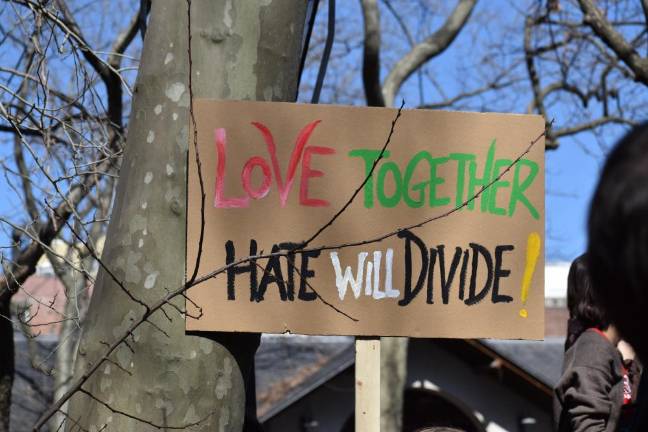 LOVE TOGETHER
HATE WILL DIVIDE!